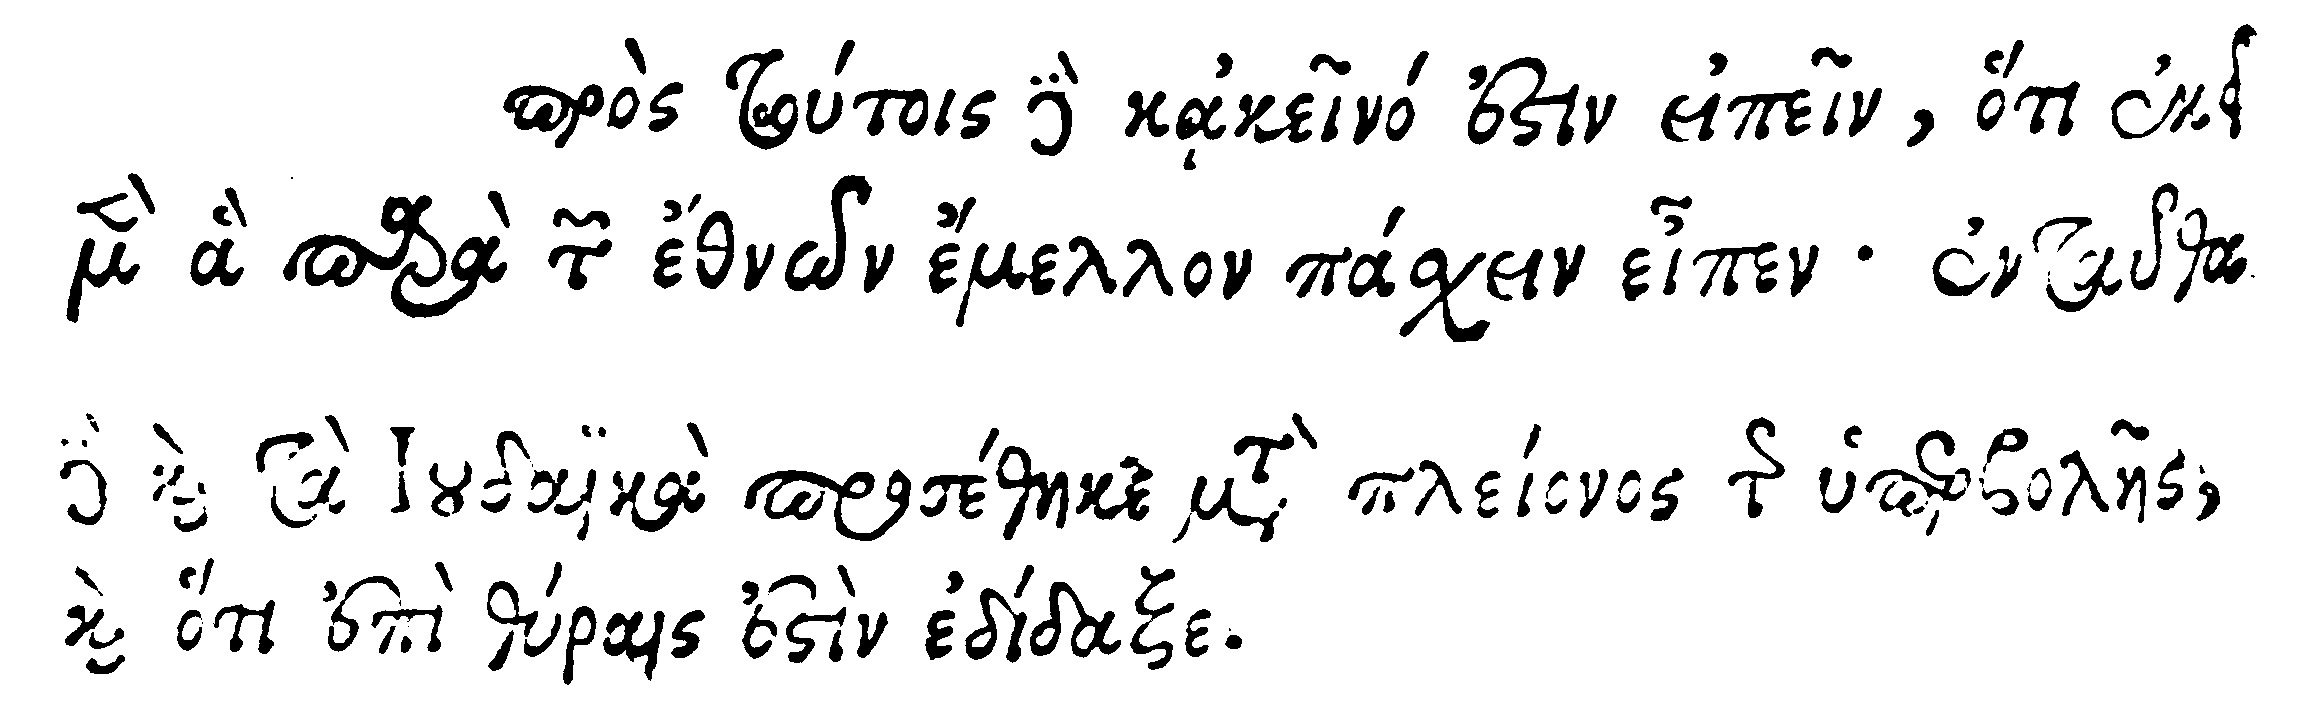 πρὸς τούτοις δὲ κᾀκεῖνό ἐστιν εἰπεῖν, ὅτι ἐκεῖ
μὲν ἃ παρὰ τῶν ἐθνῶν ἔμελλον πάσχειν εἶπεν· ἐνταῦθα
δὲ καὶ τὰ Ιουδαϊκὰ προσέθηκε μετὰ πλείονος τῆς ὑπερβολῆς,
καὶ ὅτι ἐπὶ θύραις ἐστὶν ἐδίδαξε.